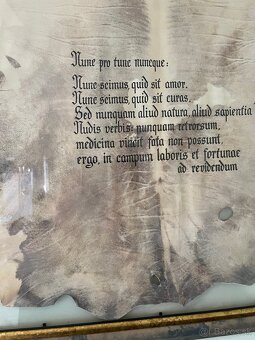 Nunc pro tunc nuncque:
Nunc scimus, quid sit amor.
Nunc scimus, quid sit curas.
Sed nunquam aliud natura, aliud sapientia
Nudis verbis: nunquam retrorsum,
medicina vincit fata non possunt,
ergo, in campum laboris et fortunae
ad revidendum